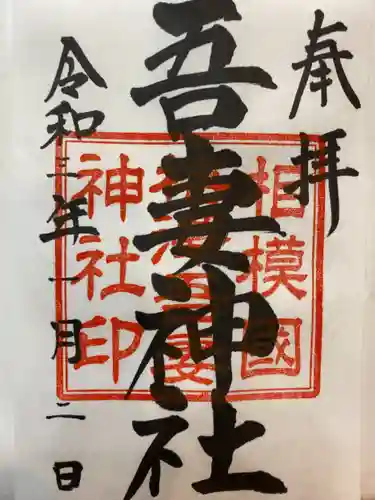 奉拝
吾妻神社
令和三年一月二日
相模國
神社印